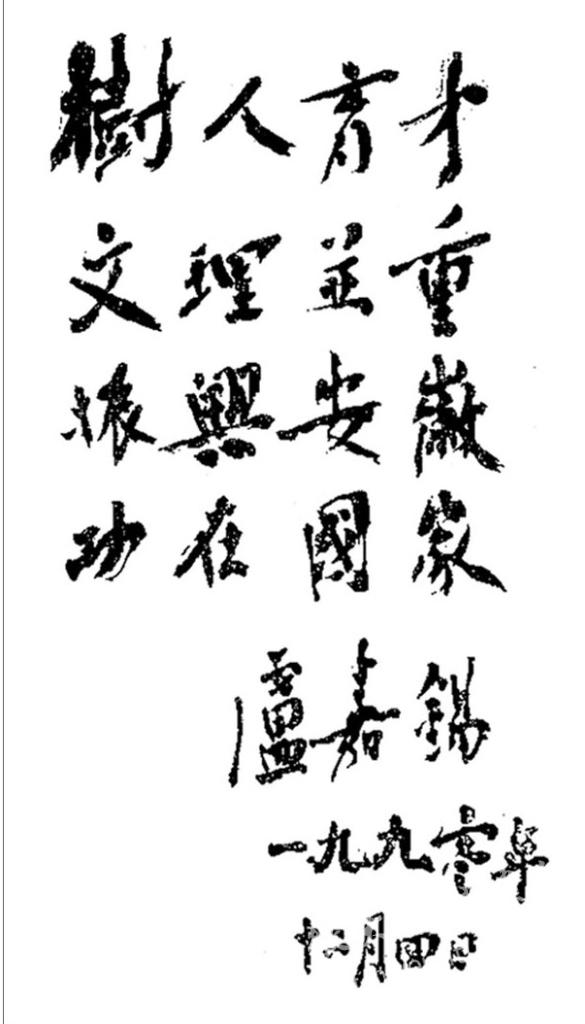 樹人育才
文理並重
振興安徽
功在國家
盧嘉錫
一九九零年
十二月四日